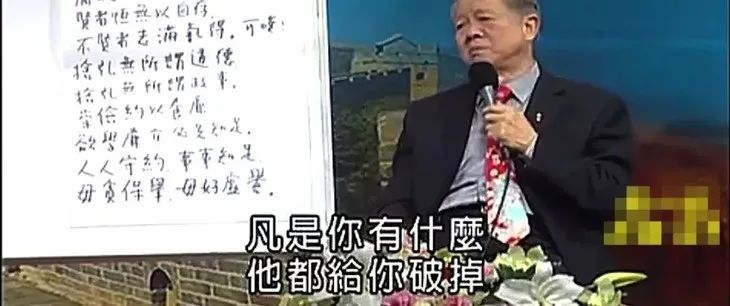 賢者恆無以自存
不賢者志滿氣得，可嘆！
捨礼無所謂道德
捨礼無所謂政事.
崇儉約以養廉
欲學廉介必先知足.
人人守約，事事知足
毋貪保舉，毋好虛譽.
凡是你有什麼
他都給你破掉